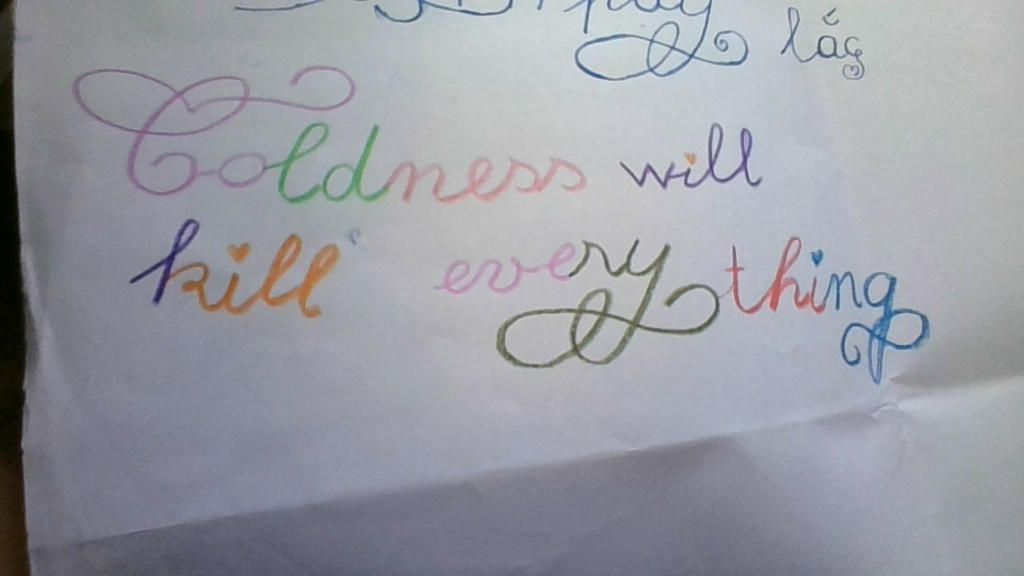 lắc
Coldness will
kill everything